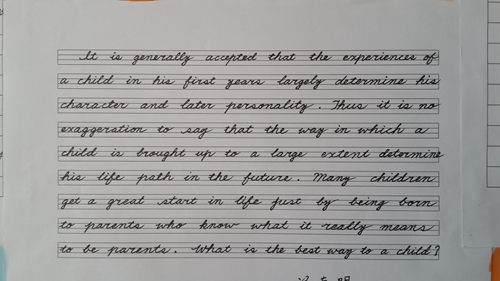 It is generally accepted that the experiences of
a child in his first years largely determine his
character and later personality. Thus it is no
exaggeration to say that the way in which a
child is brought up to a large extent determine
his life path in the future. Many children
get a great start in life just by being born
to parents who know what it really means
to be parents. What is the best way to a child?